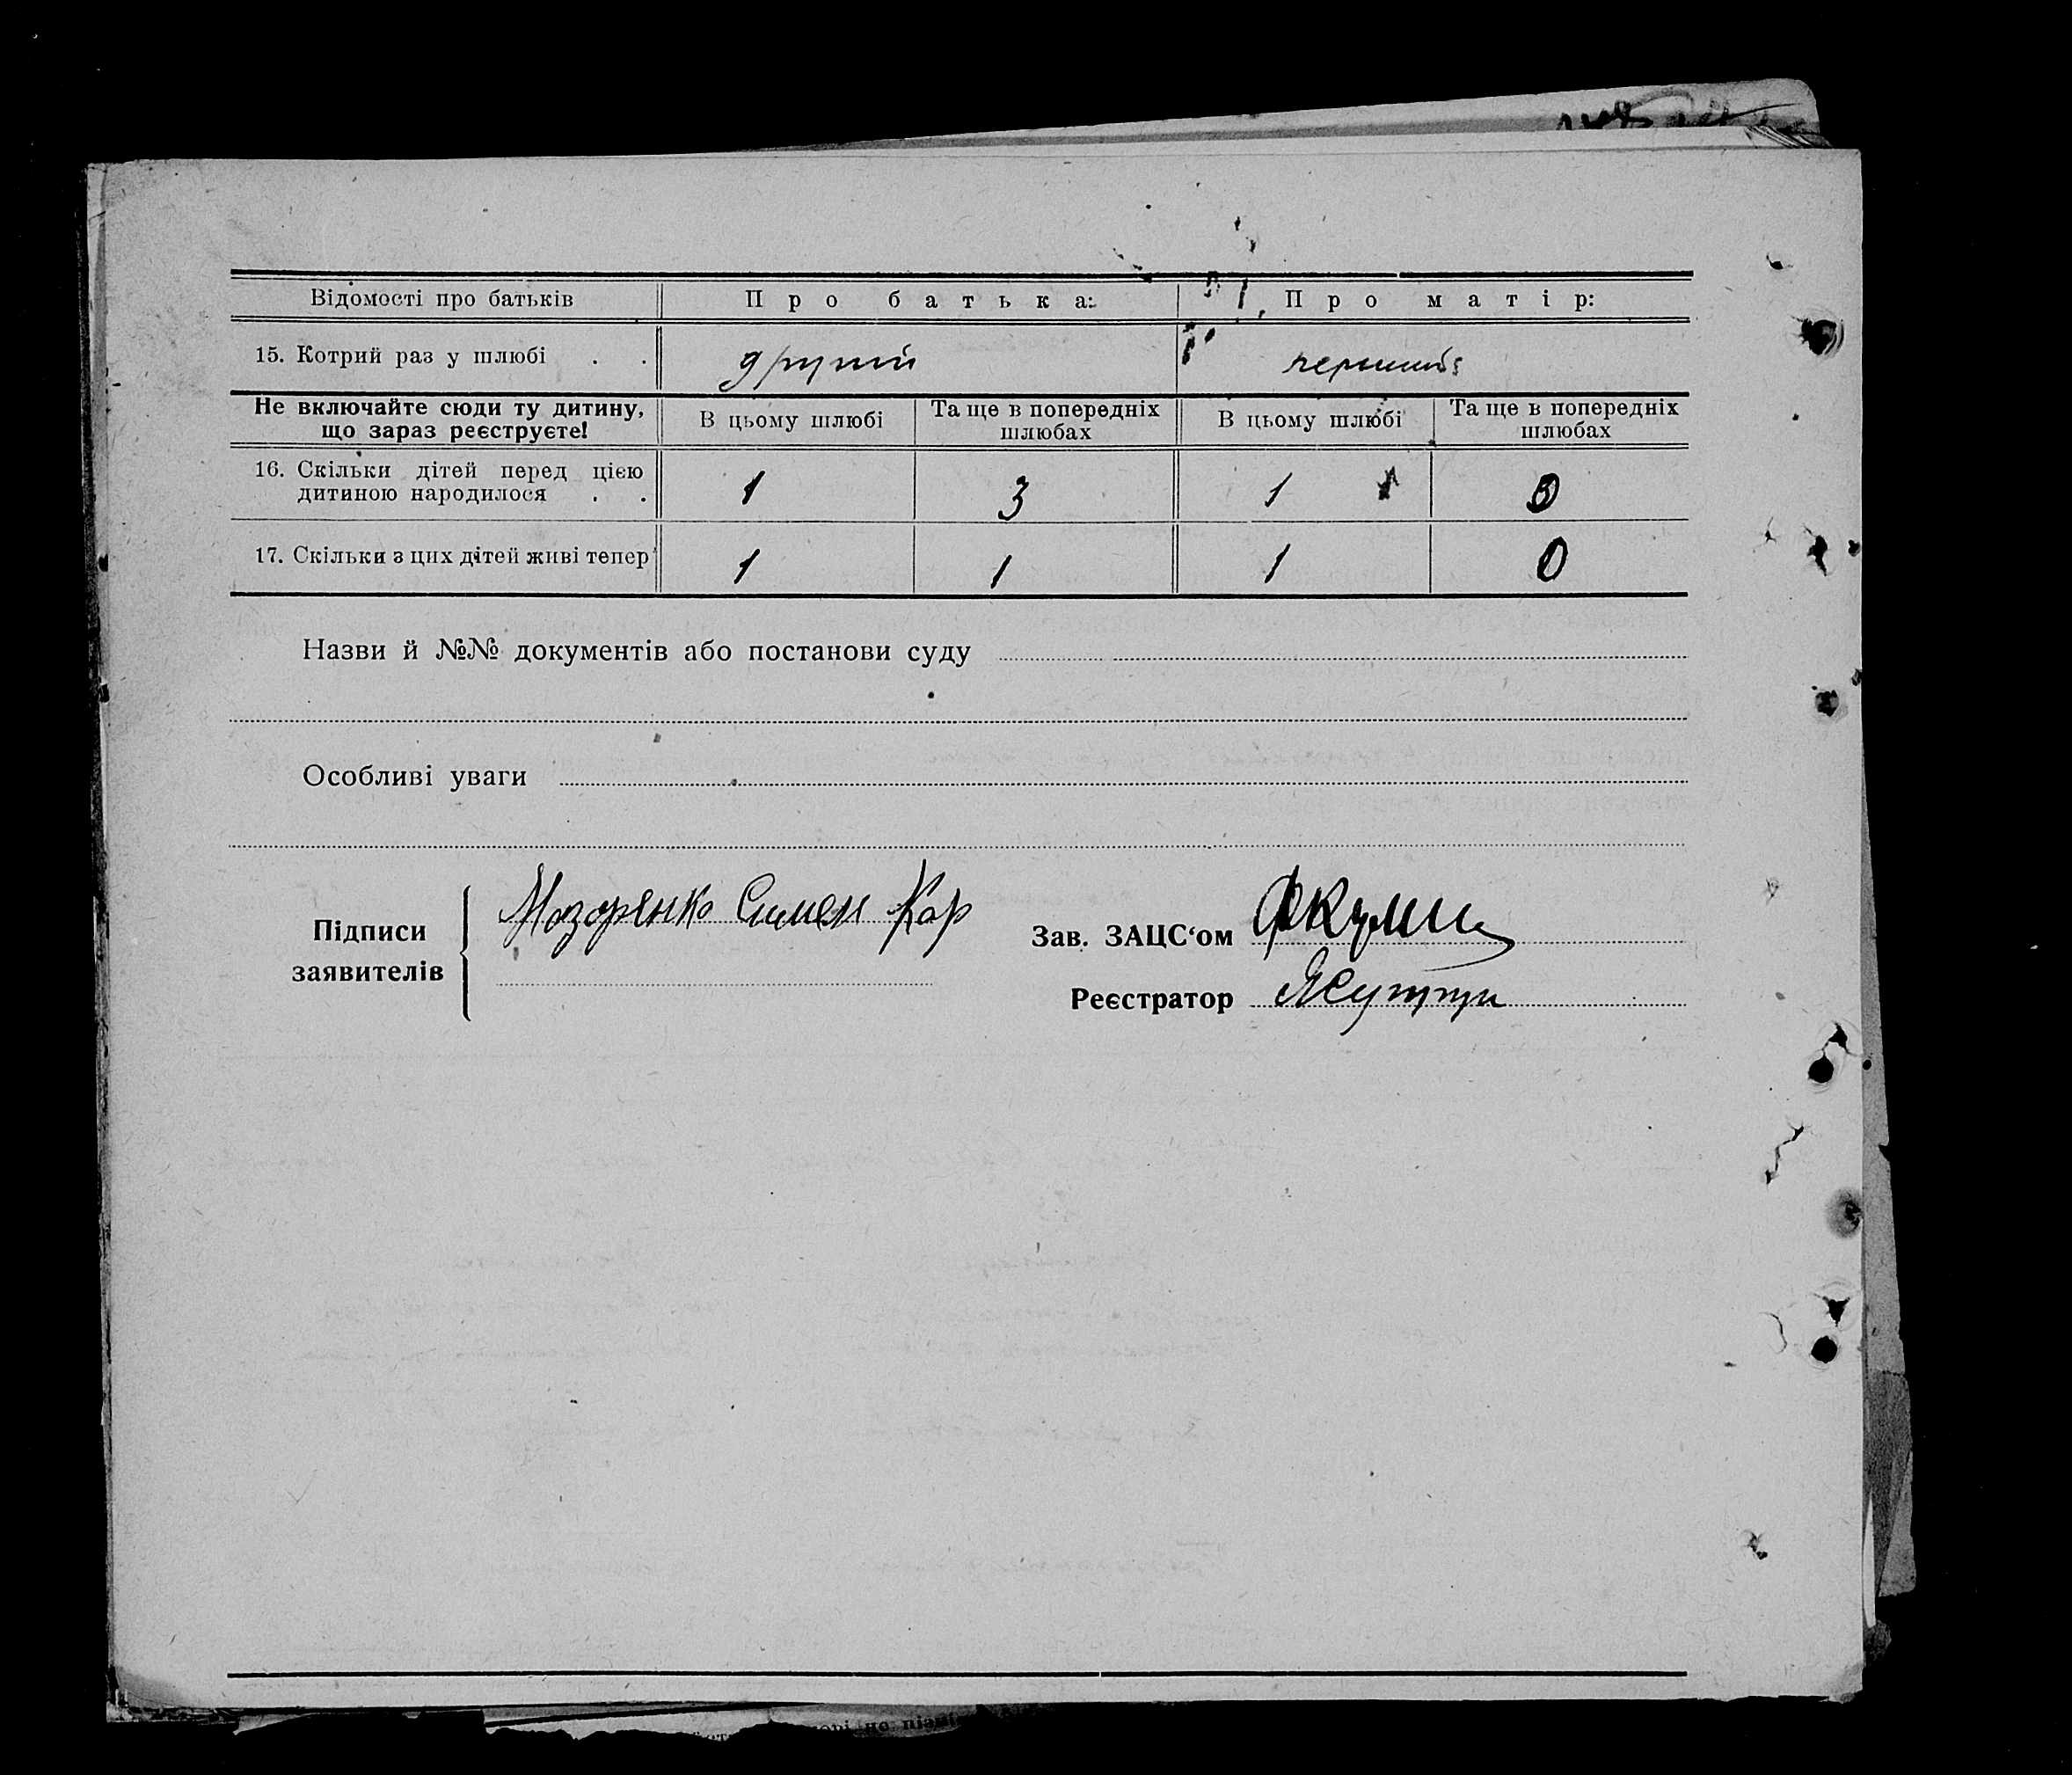 Відомості про батьків Про батька: Про матір:
15. Котрий раз у шлюбі . . другий перший
Не включайте сюди ту дитину, що зараз реєструєте! В цьому шлюбі Та ще в попередніх шлюбах В цьому шлюбі Та ще в попередніх шлюбах
16. Скільки дітей перед цією дитиною народилося . . 1 3 1 0
17. Скільки з цих дітей живі тепер 1 1 1 0
Назви й №№ документів або постанови суду
Особливі уваги
Підписи заявителів Назаренко Симен Кар
Зав. ЗАЦС‘ом
Реєстратор